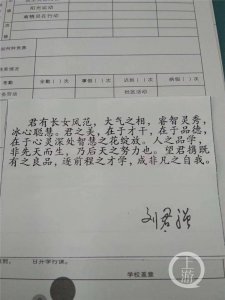 阳光运动
南粤总在行动
考勤 全勤( )次 事假( )次 迟到( )次 病假( )次
社区活动
君有长女风范，大气之相，睿智灵秀，
冰心聪慧。君之美，在于才干，在于品德，
在于心灵深处智慧之花绽放。人之品学，
非先天而生，乃后天之努力也。望君携既
有之良品，逐前程之才学，成非凡之自我。
日升学行课。
学校盖章
上游